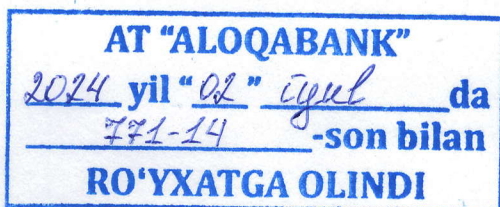 AT “ALOQABANK”
2024 yil “02” iyul da
771-14 -son bilan
RO‘YXATGA OLINDI